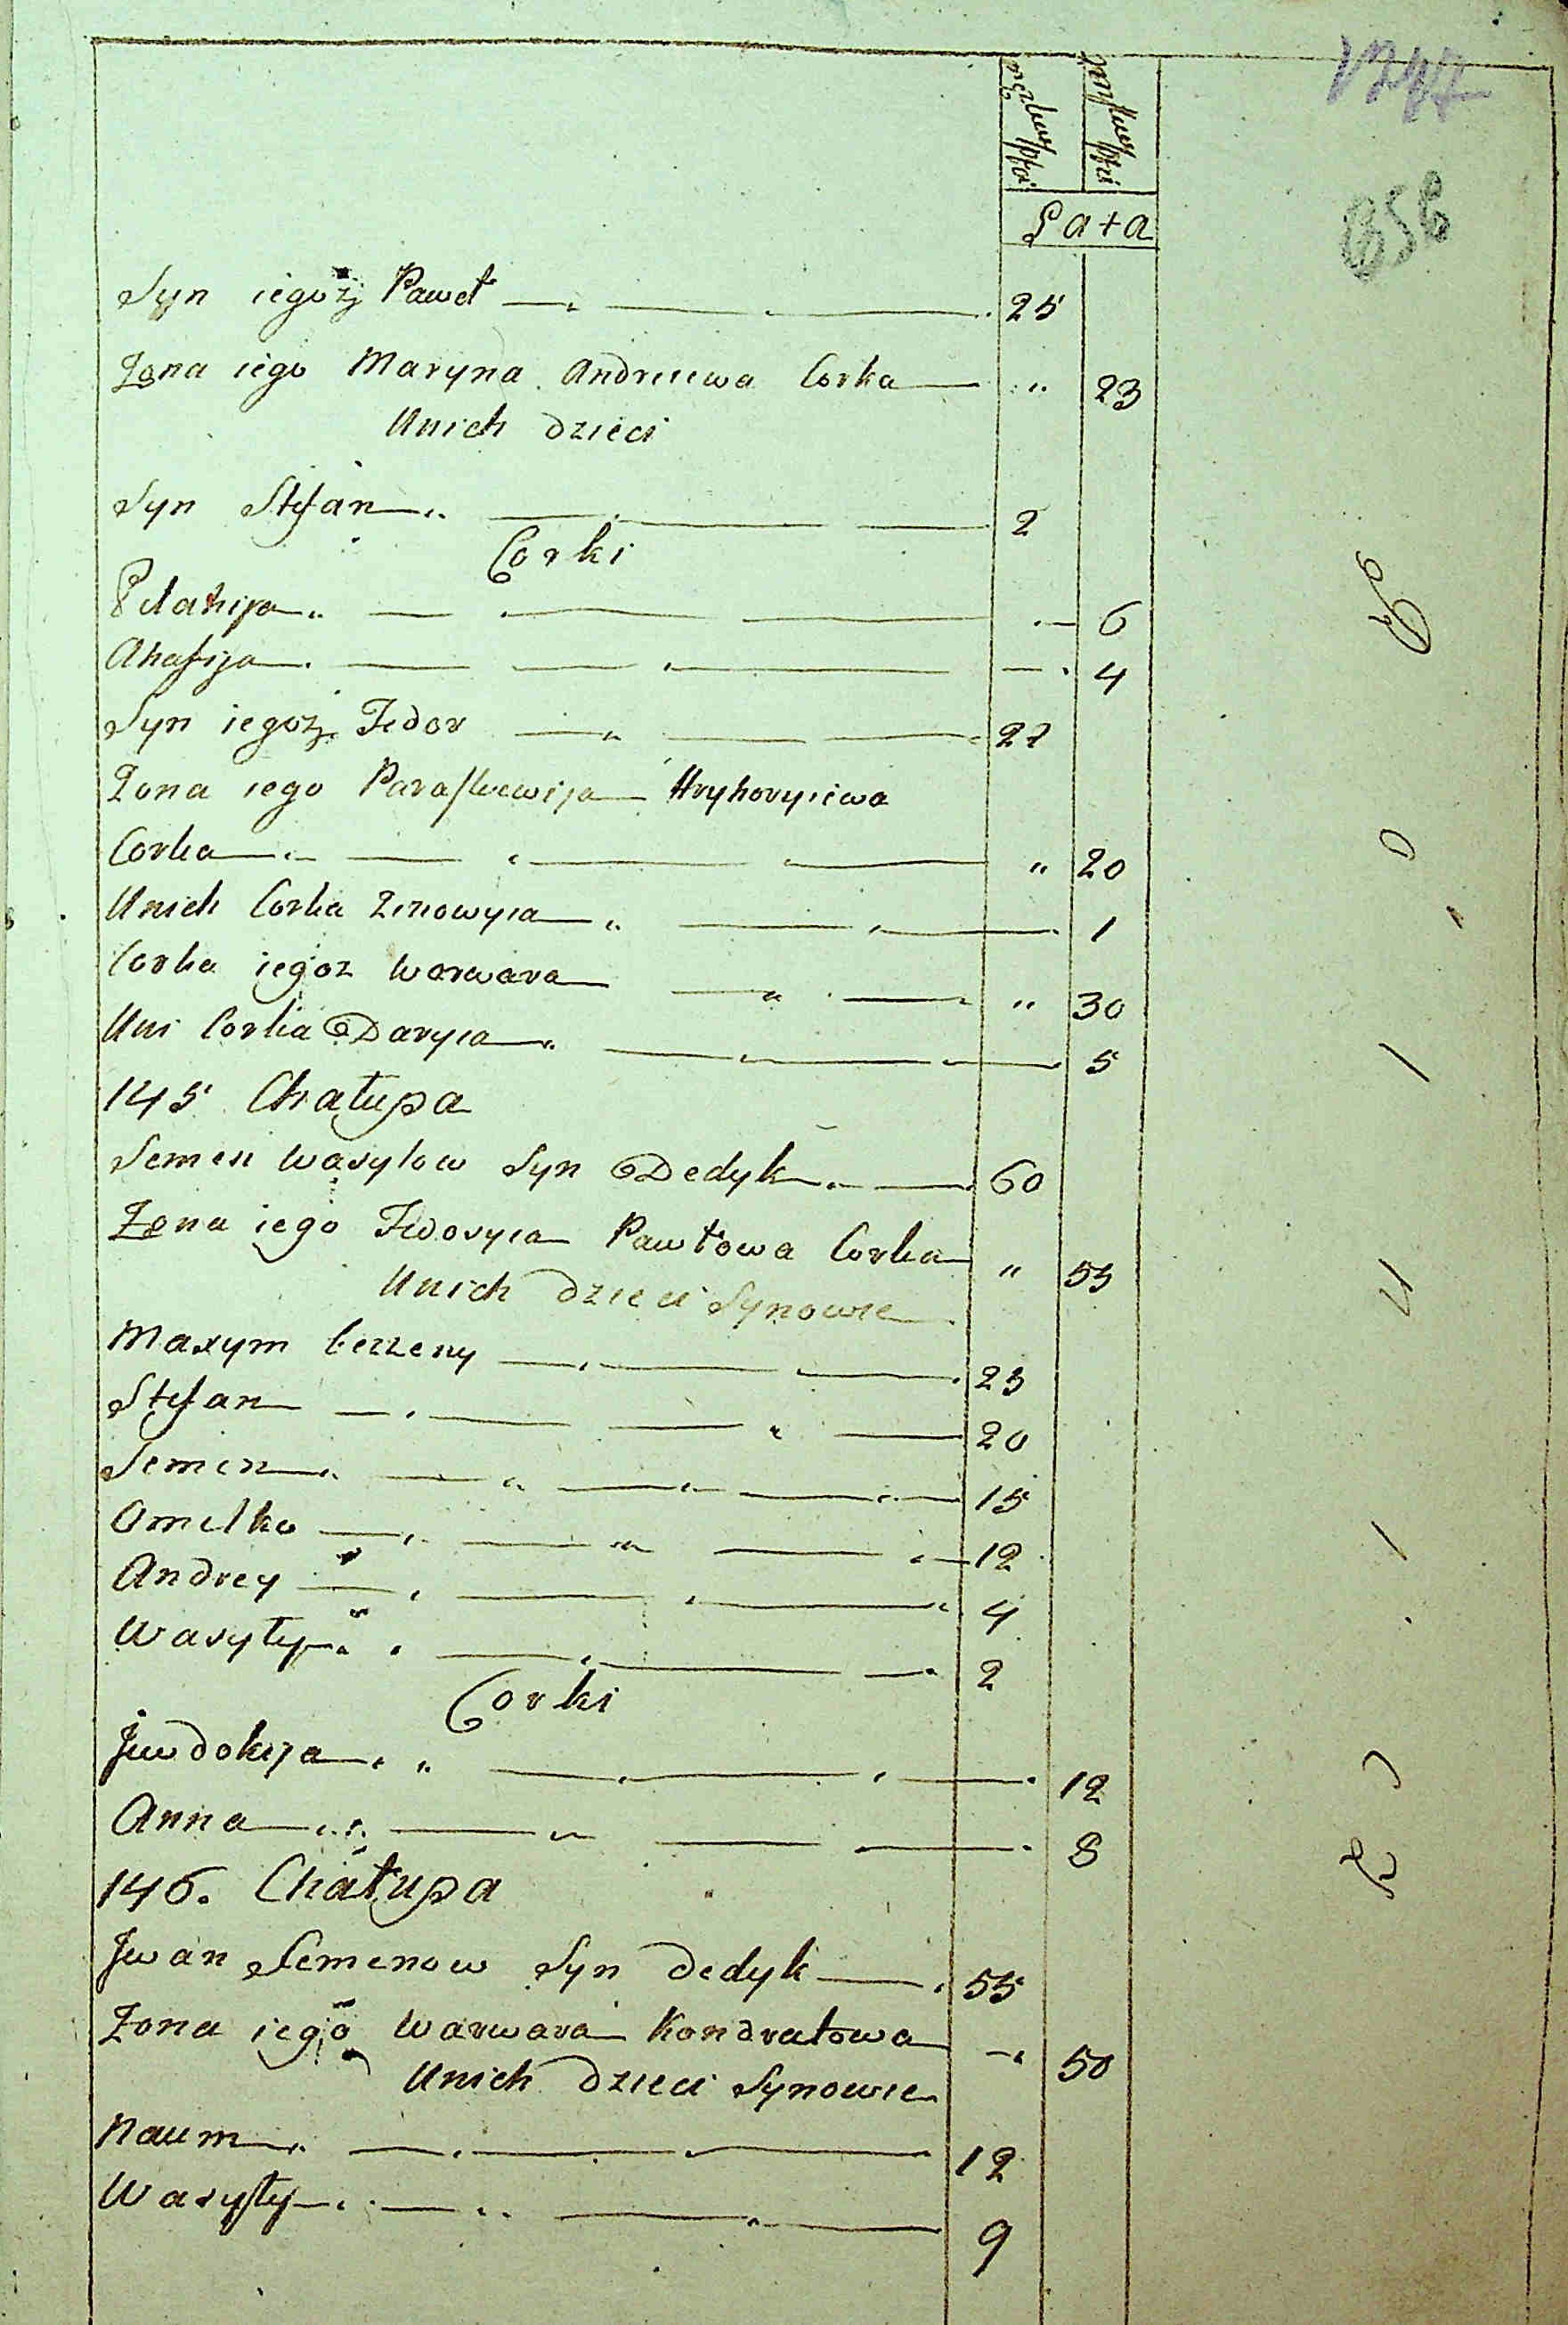 męzkiey płci
Lata
Syn iegoż Paweł 25
Żona iego Maryna Andreiewa Corka " 23
Unich dzieci
Syn Stefan 2
Corki
Pelahija 6
Ahafija 4
Syn iegoż Fedor 22
Żona iego Paraskewija Hryhoryiewa
Corka " 20
Unich Corka Zinowyia 1
Corka iegoz Warwara " 30
Uni Corka Daryia 5
145 Chałupa
Semen Wasylow Syn Dedyk 60
Żona iego Fedosyia Pawłowa Corka " 55
Unich dzieci Synowie
Maxym bezzeny 25
Stefan 20
Semen 15
Omelko 12
Andrey 4
Wasyly 2
Corki
Jewdokija 12
Anna 8
146. Chałupa
Jwan Semenow Syn Dedyk 55
Żona iego Warwara Kondratowa 50
Unich dzieci Synowie
Naum 12
Wasyly 9